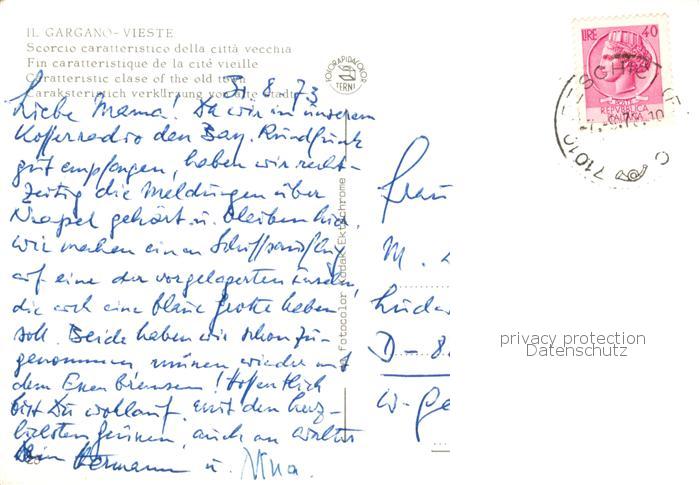 IL GARGANO - VIESTE
Scorcio caratteristico della città vecchia
Fin caratteristique de la cité vieille
Caratteristic clase of the old town
Caraksteristich verkürzung von alte stadt
31. 8. 73
Liebe Mama! Da wir in unserem
Kofferradio den Bay. Rundfunk
gut empfangen, haben wir recht-
zeitig die Meldungen über
Neapel gehört u. bleiben hier.
Wir machen einen Schiffsausflug
auf eine der vorgelagerten Inseln,
die auch eine blaue Grotte haben
soll. Beide haben wir schon zu-
genommen, müssen wieder mit
dem Essen bremsen! Hoffentlich
bist Du wohlauf. Mit den herz-
lichsten Grüssen, auch an Walter
Hermann u. Nina.
FOTORAPIDACOLOR
TERNI
Fotocolor Kodak Ektachrome
LIRE 40
POSTE
REPVBBLICA
ITALIANA
71070
Frau
M.
D-8
privacy protection
Datenschutz